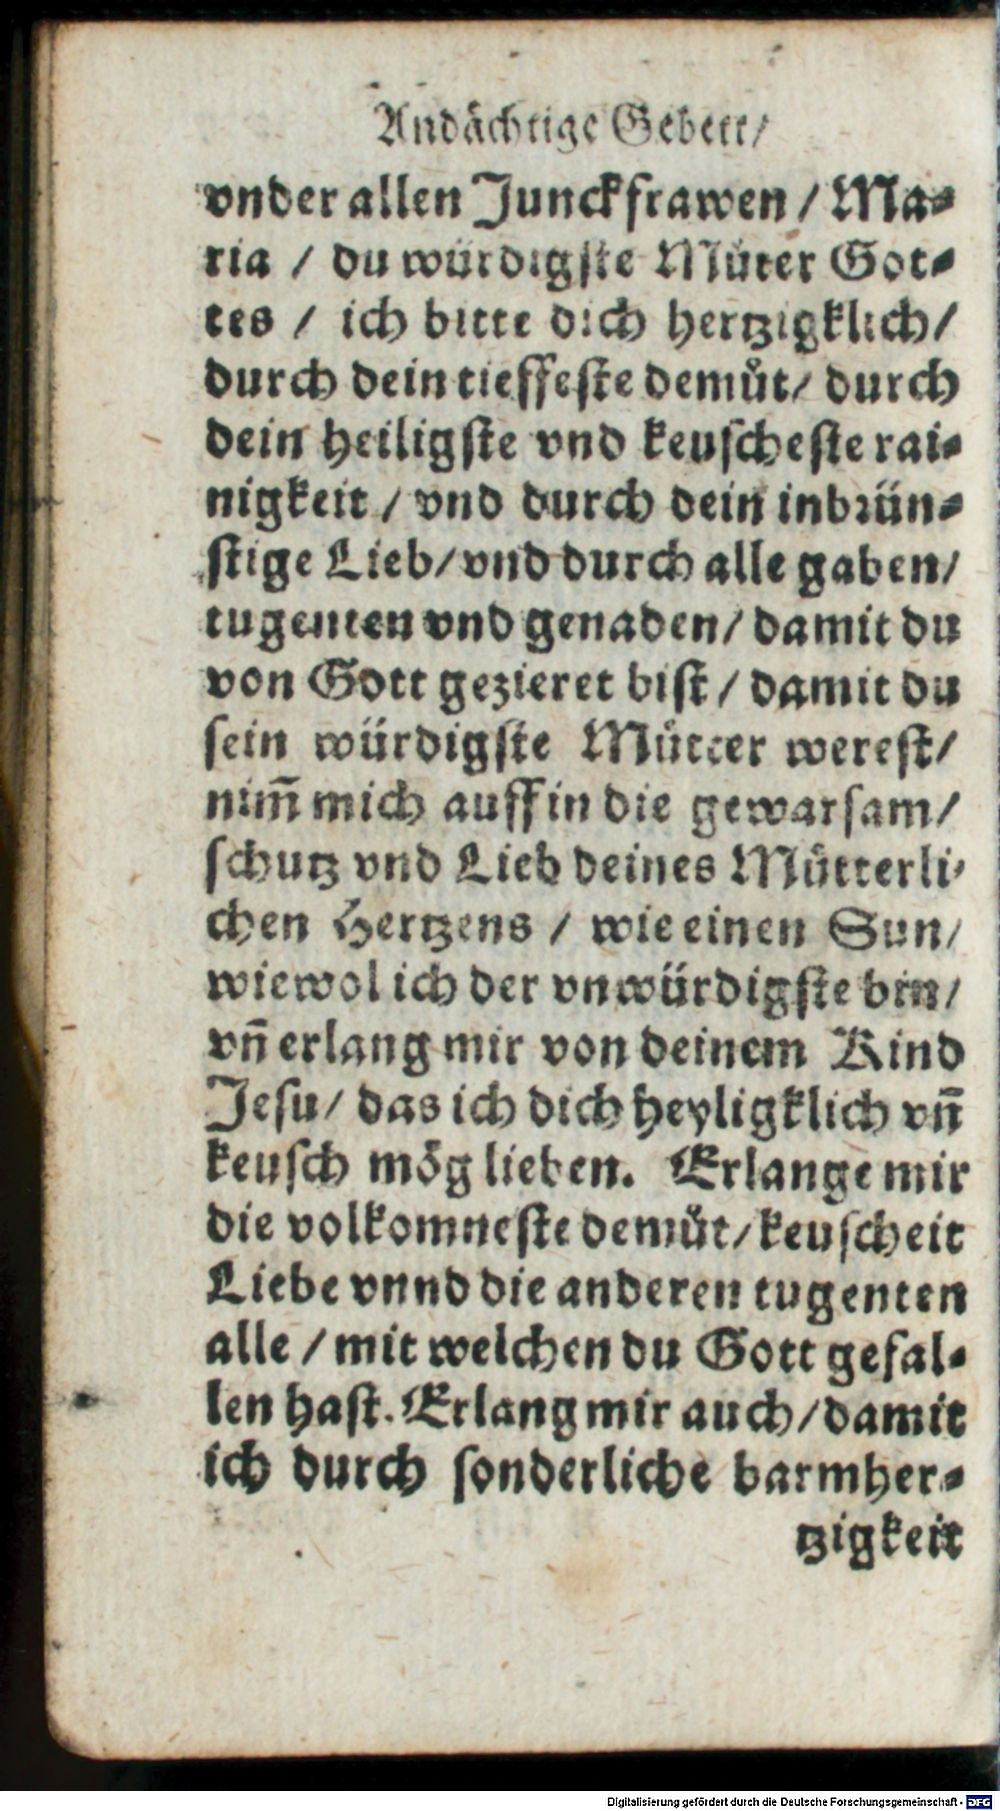 Andächtige Gebett/
vnder allen Junckfrawen / Ma⸗
ria / du würdigste Můter Got⸗
tes / ich bitte dich hertzigklich/
durch dein tieffeste demůt/ durch
dein heiligste vnd keuscheste rai⸗
nigkeit / vnd durch dein inbrün⸗
stige Lieb/ vnd durch alle gaben/
tugenten vnd genaden/ damit du
von Gott gezieret bist / damit du
sein würdigste Můtter werest/
nim̄ mich auff in die gewarsam/
schutz vnd Lieb deines Můtterli⸗
chen Hertzens / wie einen Sun/
wiewol ich der vnwürdigste bin/
vn̄ erlang mir von deinem Kind
Jesu/ das ich dich heyligklich vn̄
keusch mög lieben. Erlange mir
die volkomneste demůt/ keuscheit
Liebe vnnd die anderen tugenten
alle / mit welchen du Gott gefal⸗
len hast. Erlang mir auch/ damit
ich durch sonderliche barmher⸗
tzigkeit
Digitalisierung gefördert durch die Deutsche Forschungsgemeinschaft - DFG